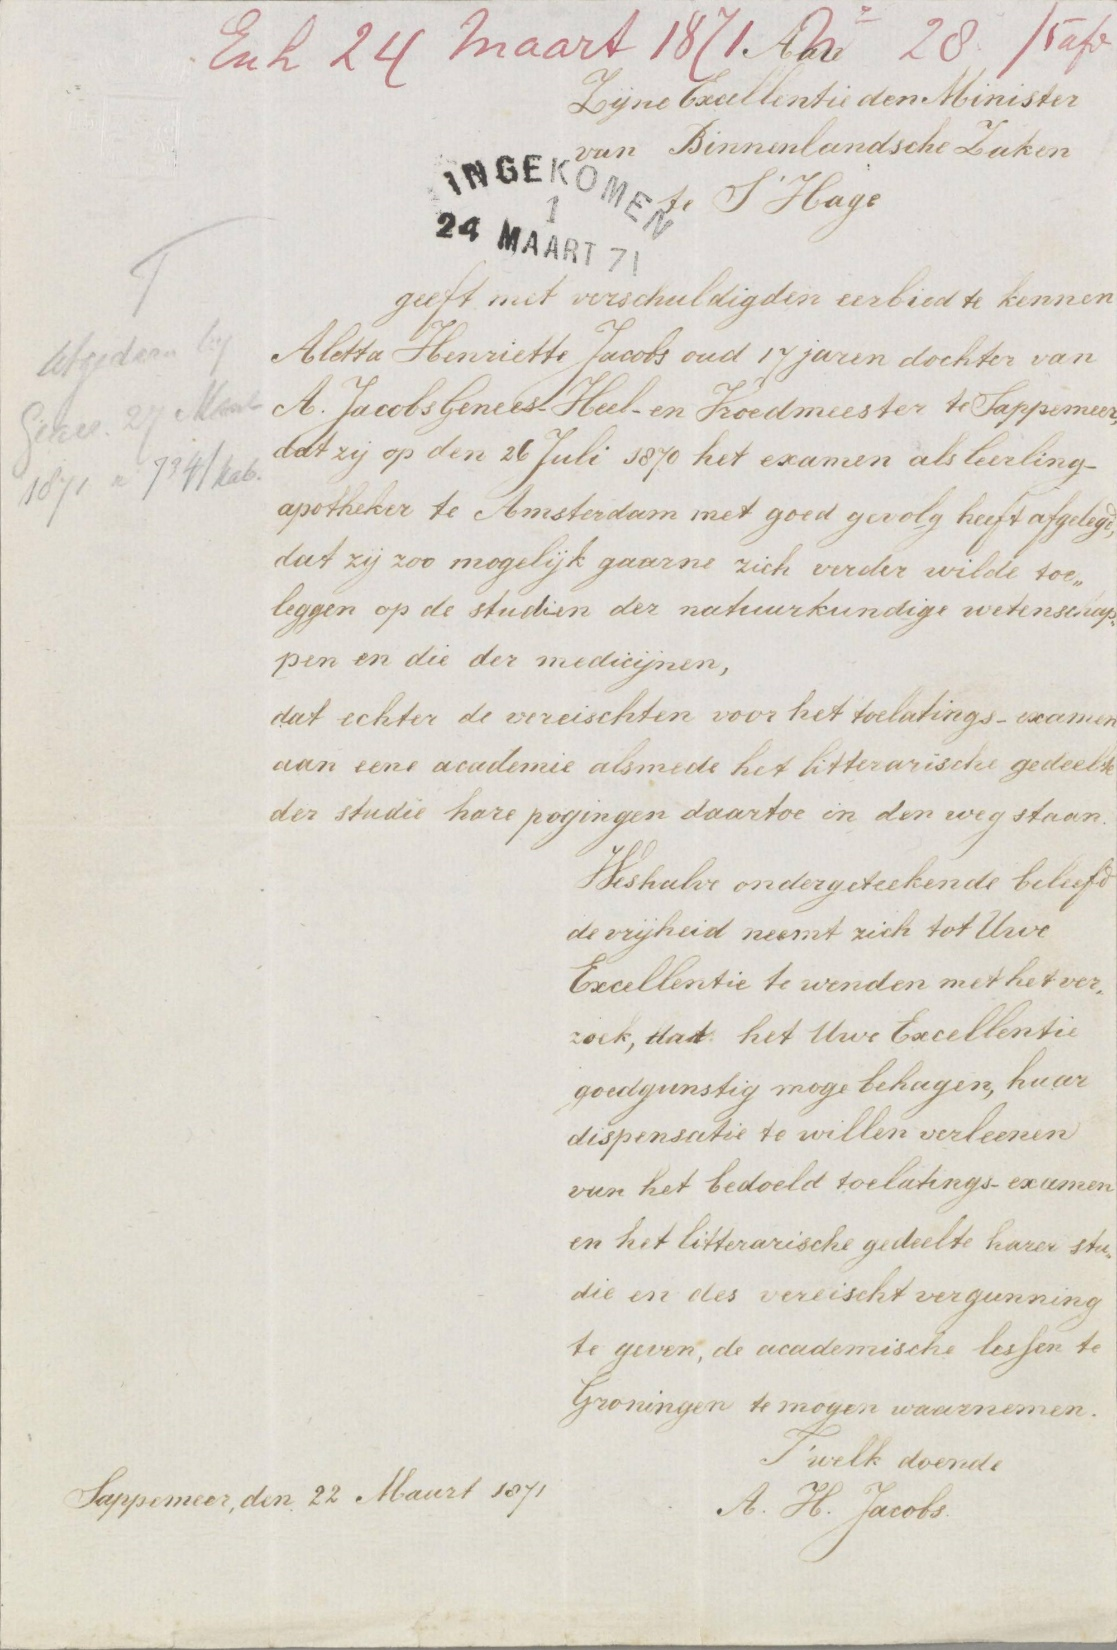 Exh 24 Maart 1871 No 28 /5 afd
Aan
Zijne Excellentie den Minister
van Binnenlandsche Zaken
te S'Hage
INGEKOMEN
1
24 MAART 71
geeft met verschuldigden eerbied te kennen
Aletta Henriette Jacobs oud 17 jaren dochter van
A. Jacobs Genees- Heel- en Vroedmeester te Sappemeer,
dat zij op den 26 Juli 1870 het examen als leerling-
apotheker te Amsterdam met goed gevolg heeft afgelegd,
dat zij zoo mogelijk gaarne zich verder wilde toe„
leggen op de studien der natuurkundige wetenschap„
pen en die der medicijnen,
dat echter de vereischten voor het toelatings-examen
aan eene academie alsmede het litterarische gedeelte
der studie hare pogingen daartoe in den weg staan.
27 Maart
1871 n 794/Kab.
Weshalve ondergeteekende beleefd
de vrijheid neemt zich tot Uwe
Excellentie te wenden met het ver„
zoek, dat het Uwe Excellentie
goedgunstig moge behagen, haar
dispensatie te willen verleenen
van het bedoeld toelatings-examen
en het litterarische gedeelte harer stu„
die en des vereischt vergunning
te geven, de academische lessen te
Groningen te mogen waarnemen.
T'welk doende
A. H. Jacobs.
Sappemeer, den 22 Maart 1871